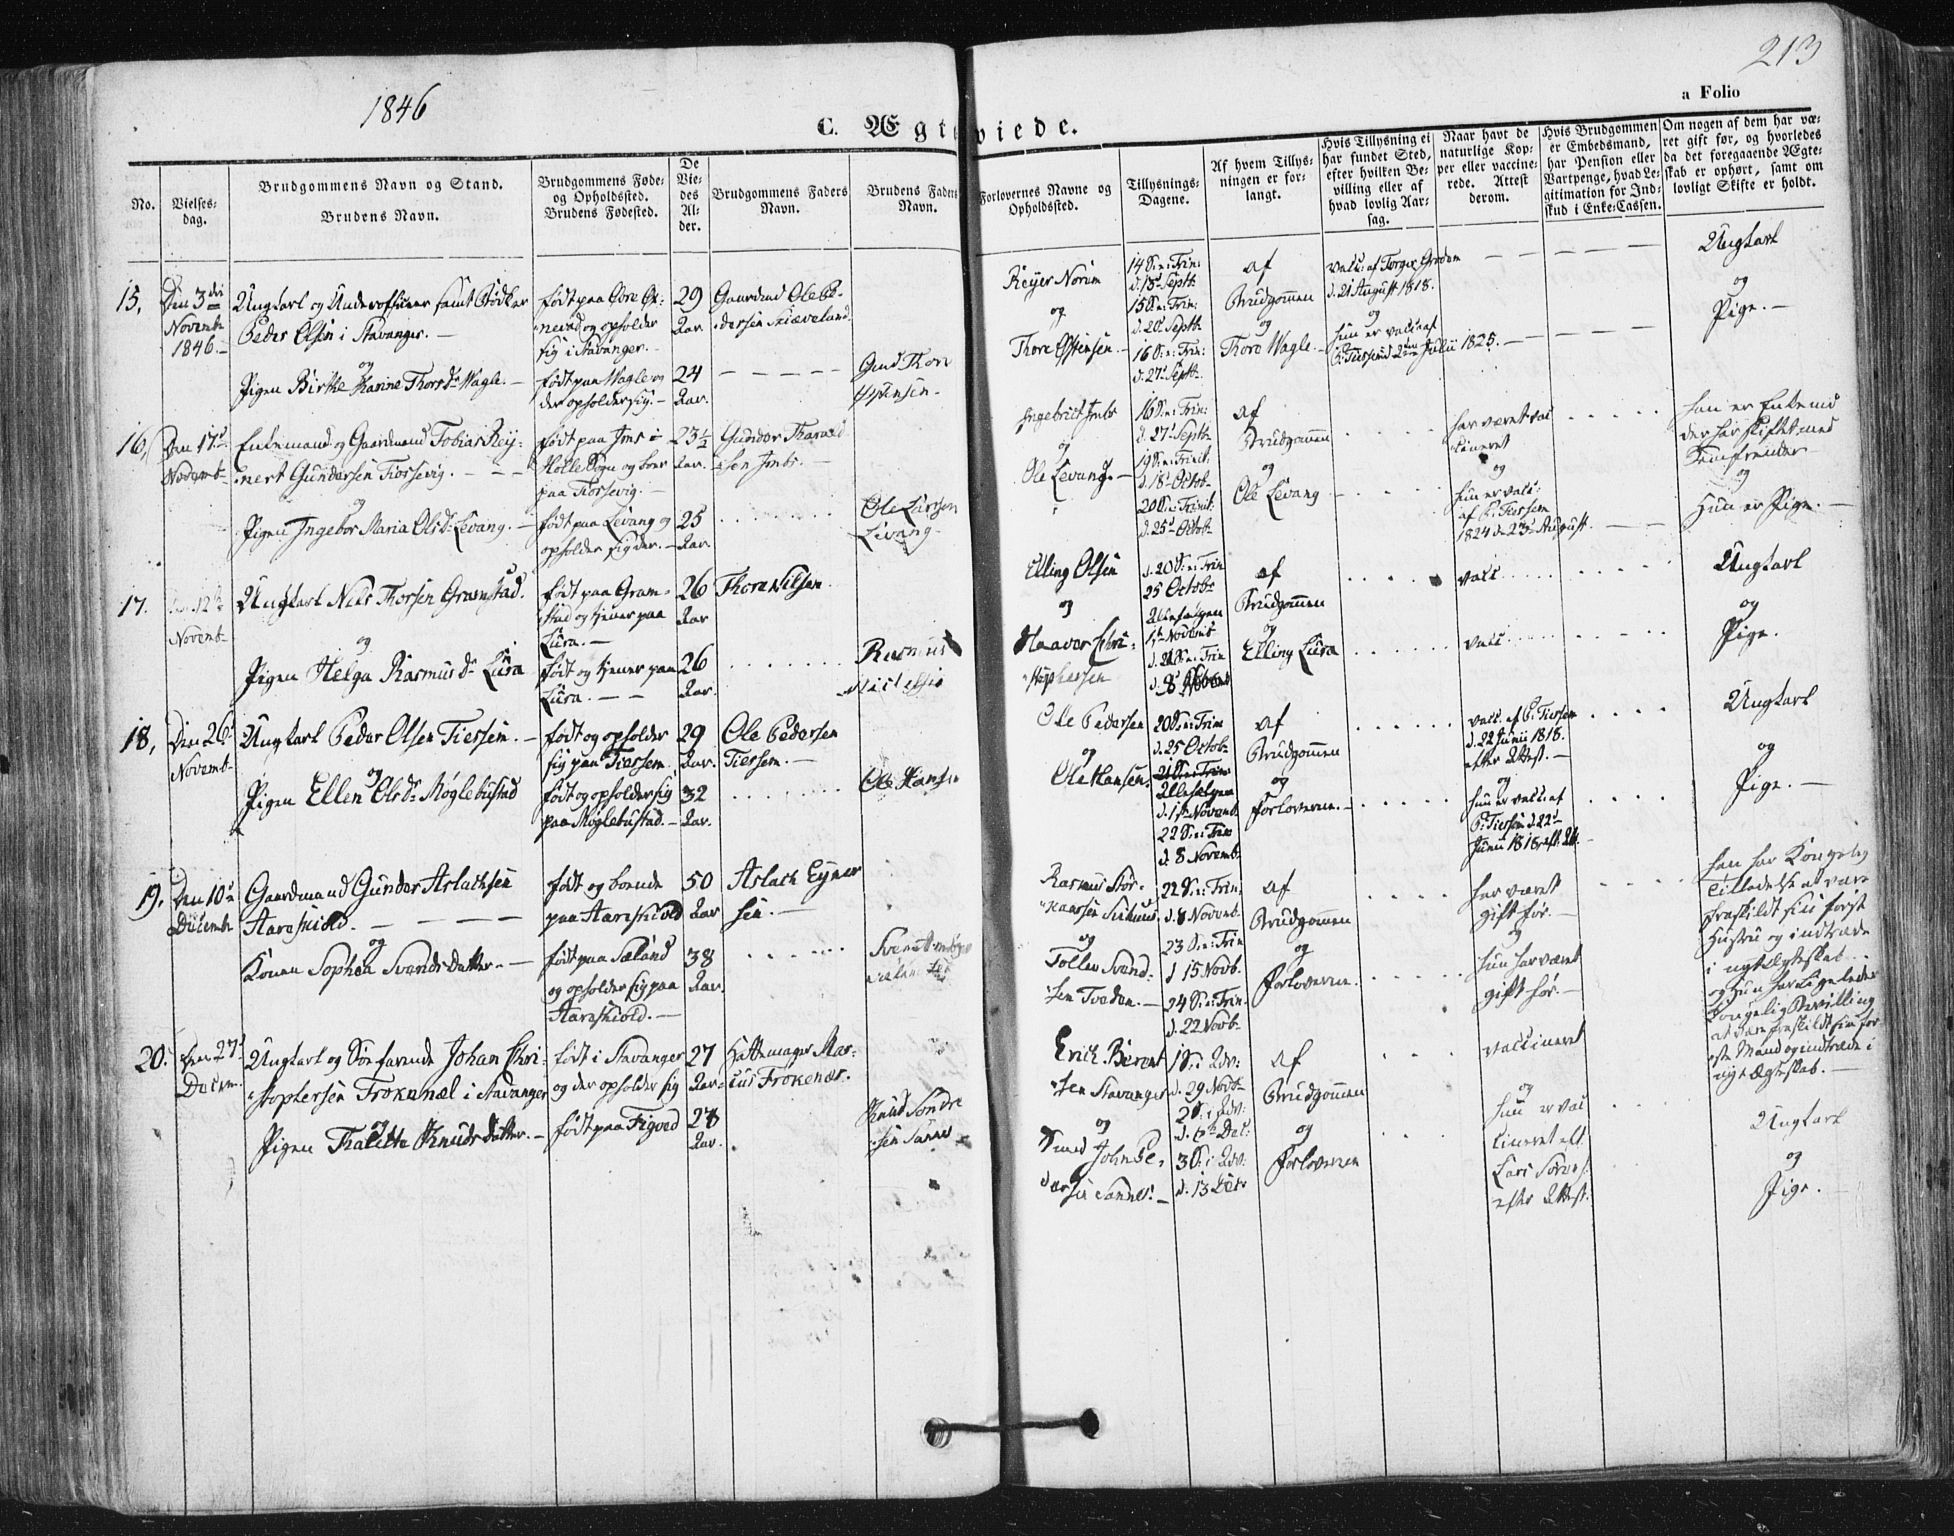 213
1846
a Folio
C. Ægteviede.
No.
Vielses-
dag.
Brudgommens Navn og Stand.
Brudens Navn.
Brudgommens Føde-
og Opholdssted.
Brudens Fødested.
De
Vie-
des
Al-
der.
Brudgommens Faders
Navn.
Brudens Faders
Navn.
Forlovernes Navne og
Opholdssted.
Tillysnings-
Dagene.
Af hvem Tillys-
ningen er for-
langt.
Hvis Tillysning ei
har fundet Sted,
efter hvilken Be-
villing eller af
hvad lovlig Aar-
sag.
Naar havt de
naturlige Kop-
per eller vaccine-
rede. Attest
derom.
Hvis Brudgommen
er Embedsmand,
har Pension eller
Vartpenge, hvad Le-
gitimation for Ind-
skud i Enke-Cassen.
Om nogen af dem har væ-
ret gift før, og hvorledes
da det foregaaende Ægte-
skab er ophørt, samt om
lovligt Skifte er holdt.
15,
Den 3die
Novemb.
1846.
Ungkarl og Underofficeer samt Bødker
Peder Olsen i Stavanger. —
og
Pigen Birthe Karine Thorsdr Wagle. —
født paa
og opholder
sig i Stavanger. —
født paa Wagle og
der opholder sig. —
29
Aar.
24
Aar.
Gaardmd Ole Pe-
dersen Skiæveland.
Gmd Thore
Reyer Norem
og
Thore Østensen —
14 S. e. Trin:
d. 13 Septb
15 S. e. Trin:
d. 20 Septb
16 S. e. Trin:
d. 27 Septb
af
Brudgommen
og
Thore Wagle —
vacc: af Torger Gredem
d. 21 August 1818.
og
hun er vacc: af
P. Tiessem d. 2den Julii 1825. —
Ungkarl
og
Pige. —
16,
Den 17d
Novemb.
Enkemand og Gaardmand Tobias Rey-
nert Gundersen Tiorsevig. — —
og
Pigen Ingebor Maria Olsdr Levang. —
født paa Ims i
Holle Sogn og boer
paa Tiorsevig. —
født paa Levang og
opholder sig der. —
23½
Aar.
25
Aar.
Gunder Tharald-
sen Ims. —
Ole Larsen
Levang
Ingebrict Ims
og
Ole Levang. —
16 S. e. Trin:
d. 27 Septb
19 S. e. Trinit:
d. 18 Octob.
20 S. e. Trinit:
d. 25 Octob.
af
Brudgommen
og
Ole Levang
har været vac-
cineret
og
hun er vacc:
af P. Tiessem
1824 d. 23 August.
han er Enkemd
der har skiftet med
Samfrender
og
Hun er Pige. —
17.
12te
Novemb.
Ungkarl Nils Thorsen Gramstad.
og
Pigen Helga Rasmusdr Lura
født paa Gram-
stad og tjener paa
Lura. —
født og tjener paa
Lura. — —
26
Aar
26
Aar.
Thore Nilsen
Rasmus
Elling Olsen
og
Haavar Chri-
stophersen
d. 20 S. e. Trin
25 Octob.
Allehelgen
1ste Novemb
d. 21 S. e. Trin
d. 8 Novemb
af
Brudgommen
og
Elling Lura
vacc
vacc
Ungkarl
og
Pige.
18,
Den 26d
Novemb.
Ungkarl Peder Olsen Tiessem. —
og
Pigen Ellen Olsdr Møglebustad
født og opholder
sig paa Tiessem
født og opholder sig
paa Møglebustad. —
29
Aar.
32
Aar.
Ole Pedersen
Tiessem. —
Ole Hansen
Ole Pedersen
og
Ole Hansen
20 S. e. Trin
d. 25 Octob.
21 S. e. Trin
Allehelgen
d. 1ste Novemb.
22 S. e. Trin
d. 8 Novemb.
af
Brudgommen
og
Forloveren. —
vacc. af P. Tiessem
d. 22 Junii 1818.
efter Attest. —
og
hun er vacc: af
P. Tiessem d. 22d
Junii 1818 eft. Att.
Ungkarl
og
Pige. —
19,
Den 10de
Decemb
Gaardmand Gunder Aslachsen
Aareskiold. — — — —
og
Konen Sophia Svends Datter. —
født og boende
paa Aareskiold
født paa Sæland
og opholder sig paa
Aareskiold. —
50
Aar
38
Aar.
Aslach Eyner
sen. —
Rasmus
og
Tollev Svend-
sen Tveden. —
22 S. e. Trin.
d. 8 Novemb.
23 S. e. Trin
d 15 Novb.
24 S. e. Trin.
d. 22 Novb.
af
Brudgommen
og
Forloveren.
har været
gift før. —
og
hun har været
gift før. —
han har Kongelig
Tilladelse at være
fraskildt sin første
Hustru og indtræde
i nyt Ægteskab. —
og hun har ligeledes
Kongelig Bevilling
at være fraskildt sin før-
ste Mand og indtræde i
nyt Ægteskab. —
20.
Den 27d
Decem.
Ungkarl og Søefarende Johan Chri-
stophersen Frokenæs i Stavanger
og
Pigen Thalette Knuds Datter. —
født i Stavanger
og der opholder sig
født paa Figved
27
Aar.
28
Aar.
Hattemager Mar-
cus Frokenæs.
Knud
Sannes
Erich Berent-
sen Stavanger
og
Knud John Pe-
dersen Sannes. —
1 S. i Adv:
d. 29 Novb.
2 S. i Adv:
d. 6te Dec:
3 S. i Adv:
d. 13 Decbr
af
Brudgommen
og
Forloveren
vaccineret
og
hun er vac-
cineret af
Lars
efter Attest.
Ungkarl
og
Pige.